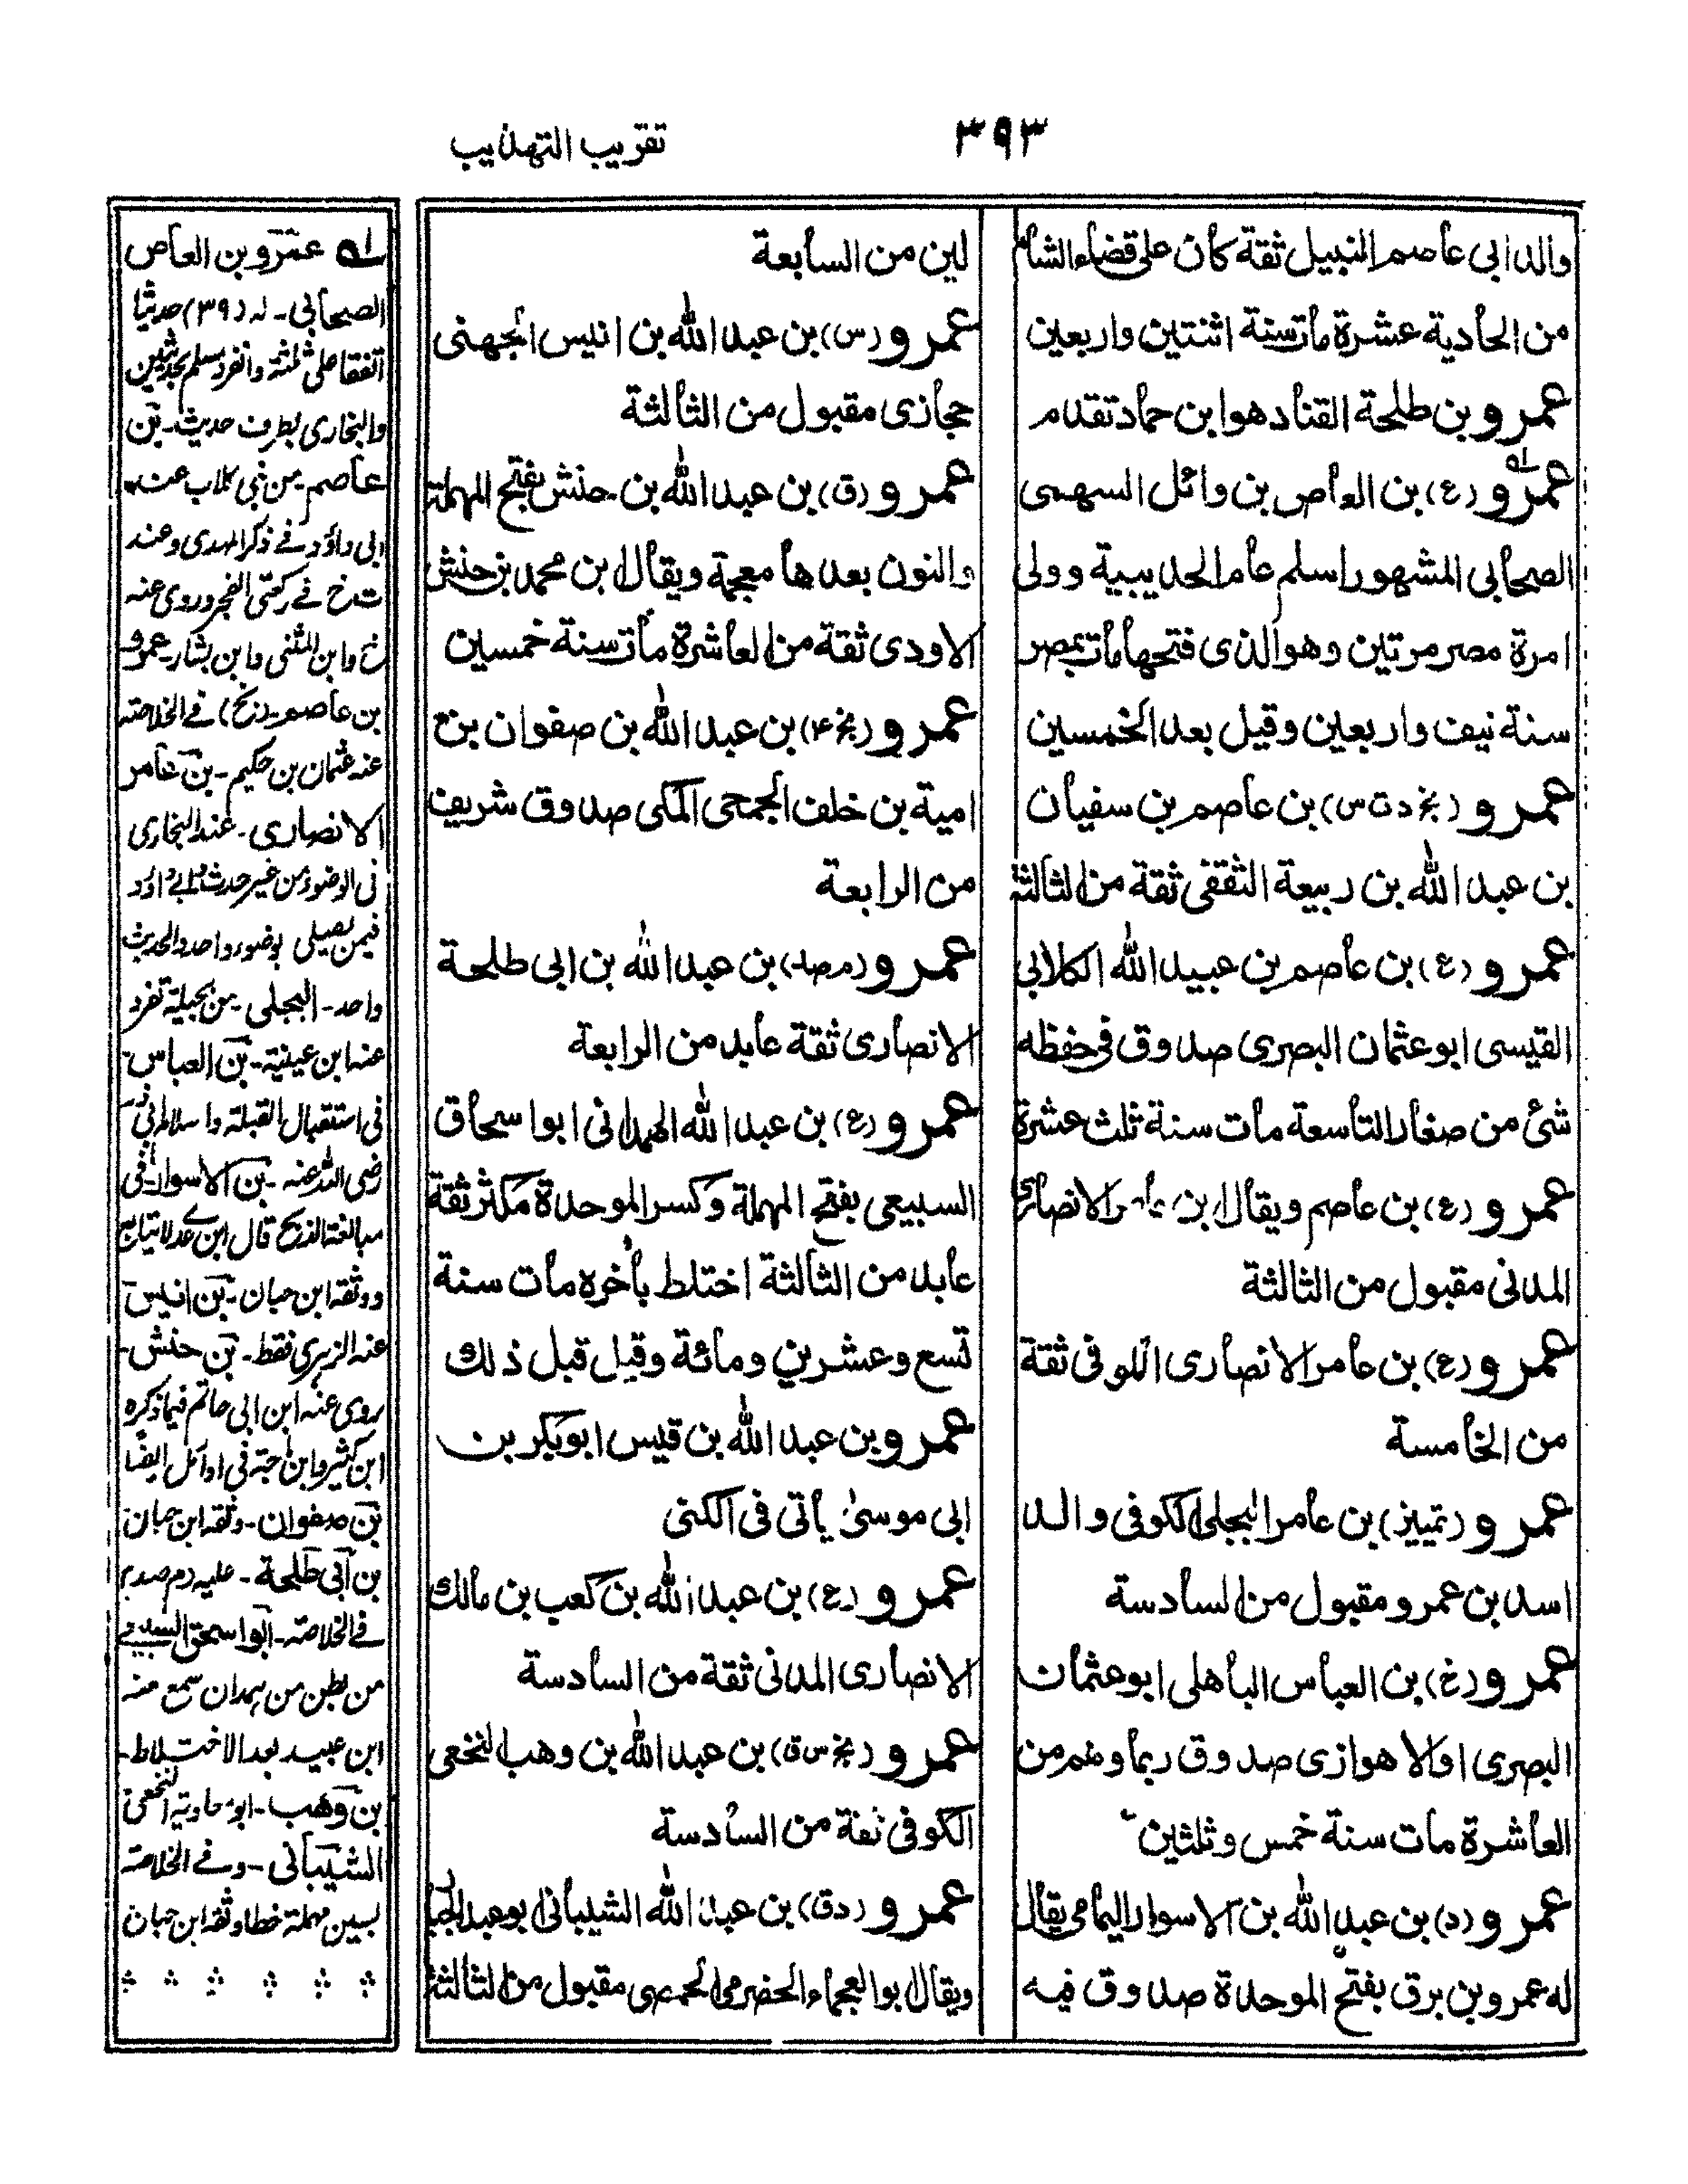 ٣٩٣
تقريب التهذيب
والد ابی عاصم النبیل ثقة كان علی قضاء الشام
من الحادية عشرة مات سنة اثنتین واربعین
عمرو بن طلحة القناد هو ابن حماد تقدم
عمرو (ع) بن العاص بن وائل السهمی
الصحابی المشهور اسلم عام الحديبية وولی
امرة مصر مرتین وهو الذی فتحها مات بمصر
سنة نيف واربعین وقيل بعد الخمسین
عمرو (بخ د ت س) بن عاصم بن سفيان
بن عبد الله بن ربيعة الثقفی ثقة من الثالثة
عمرو (ع) بن عاصم بن عبيد الله الكلابی
القيسی ابو عثمان البصری صدوق فی حفظه
شئ من صغار التاسعة مات سنة ثلث عشرة
عمرو (ع) بن عاصم ويقال ابن عامر الانصاری
المدنی مقبول من الثالثة
عمرو (ع) بن عامر الانصاری الكوفی ثقة
من الخامسة
عمرو (تمييز) بن عامر البجلی الكوفی والد
اسد بن عمرو مقبول من السادسة
عمرو (خ) بن العباس الباهلی ابو عثمان
البصری او الاهوازی صدوق ربما وهم من
العاشرة مات سنة خمس وثلثین
عمرو (د) بن عبد الله بن الاسوار اليمامی يقال
له عمرو بن برق بفتح الموحدة صدوق فيه
لين من السابعة
عمرو (س) بن عبد الله بن انيس الجهنی
حجازی مقبول من الثالثة
عمرو (ق) بن عبد الله بن حنش بفتح المهملة
والنون بعدها معجمة ويقال ابن محمد بن حنش
الاودی ثقة من العاشرة مات سنة خمسین
عمرو (بخ ٤) بن عبد الله بن صفوان بن
امية بن خلف الجمحی المكی صدوق شريف
من الرابعة
عمرو (م صد) بن عبد الله بن ابی طلحة
الانصاری ثقة عابد من الرابعة
عمرو (ع) بن عبد الله الهمدانی ابو اسحاق
السبيعی بفتح المهملة وكسر الموحدة مكثر ثقة
عابد من الثالثة اختلط بأخره مات سنة
تسع وعشرين ومائة وقيل قبل ذلك
عمرو بن عبد الله بن قيس ابو بكر بن
ابی موسیٰ يأتی فی الكنی
عمرو (ع) بن عبد الله بن كعب بن مالك
الانصاری المدنی ثقة من السادسة
عمرو (بخ س ق) بن عبد الله بن وهب النخعی
الكوفی ثقة من السادسة
عمرو (د ق) بن عبد الله الشيبانی ابو عبد الجبار
ويقال ابو العجماء الحضرمی الحمصی مقبول من الثالثة
عمرو بن العاص
الصحابی - له (٣٩) حديثا
اتفقا علی ثلثة وانفرد مسلم بحديثين
والبخاری بطرف حديث - بن
عاصم - من بنی كلاب عنه
ابی داؤد فے ذكر المهدی وعند
ت خ فے ركعتی الفجر وروی عنه
خ وابن المثنی وابن بشار - عمرو
بن عاصم - (بخ) فے الخلاصة
عنه عثمان بن حكيم - بن عامر
الانصاری - عند البخاری
فی الوضوء من غير حدث ولابی داؤد
فيمن يصلی بوضوء واحد والحديث
واحد - البجلی - من بجيلة تفرد
عنه ابن عيينة - بن العباس -
فی استقبال القبلة
رضی الله عنه - بن الاسوار - فی
قال ابن عدی لا يتابع
ووثقه ابن حبان - بن انيس
عنه الزهری فقط - بن حنش -
روی عنه ابن ابی حاتم فيما ذكره
ابن كثير وابن ماجة فی اوائل ايضا
بن صفوان - وثقه ابن حبان
بن ابی طلحة - عليه (م صد)
فے الخلاصة - ابو اسحق السبيعی
من بطن من همدان سمع منه
ابن عبيد بعد الاختلاط -
بن وهب - ابو معاوية النخعی
الشيبانی - وفے الخلاصة
بسين مهملة خطا وثقه ابن حبان